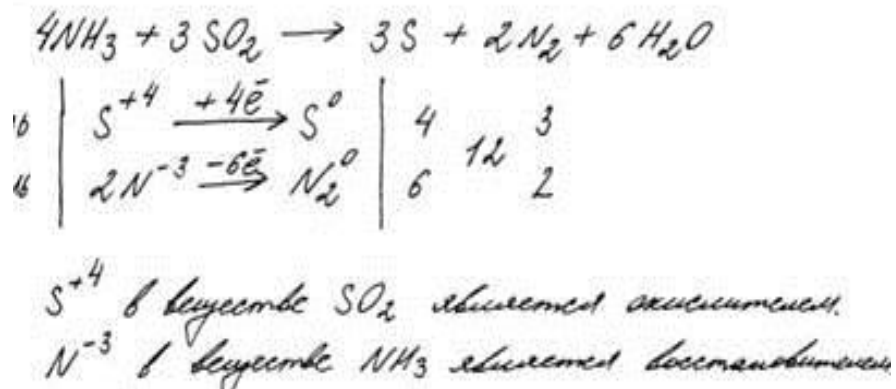 4NH₃ + 3SO₂ → 3S + 2N₂ + 6H₂O
S⁺⁴ +4ē → S⁰ | 4 3
12
2N⁻³ −6ē → N₂⁰ | 6 2
S⁺⁴ в веществе SO₂ является окислителем.
N⁻³ в веществе NH₃ является восстановителем